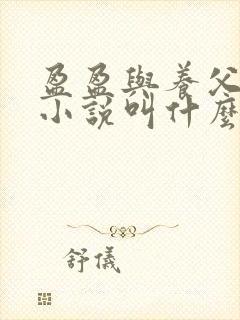 盈盈與養父
小說叫什麼
舒儀